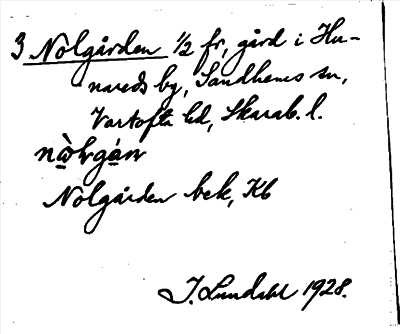 3 Nolgården 1/2 fr, gård i Hu-
nareds by, Sandhems sn,
Vartofta hd, Skarab. l.
Nolgården bek, Kb
I. Lundahl 1928.